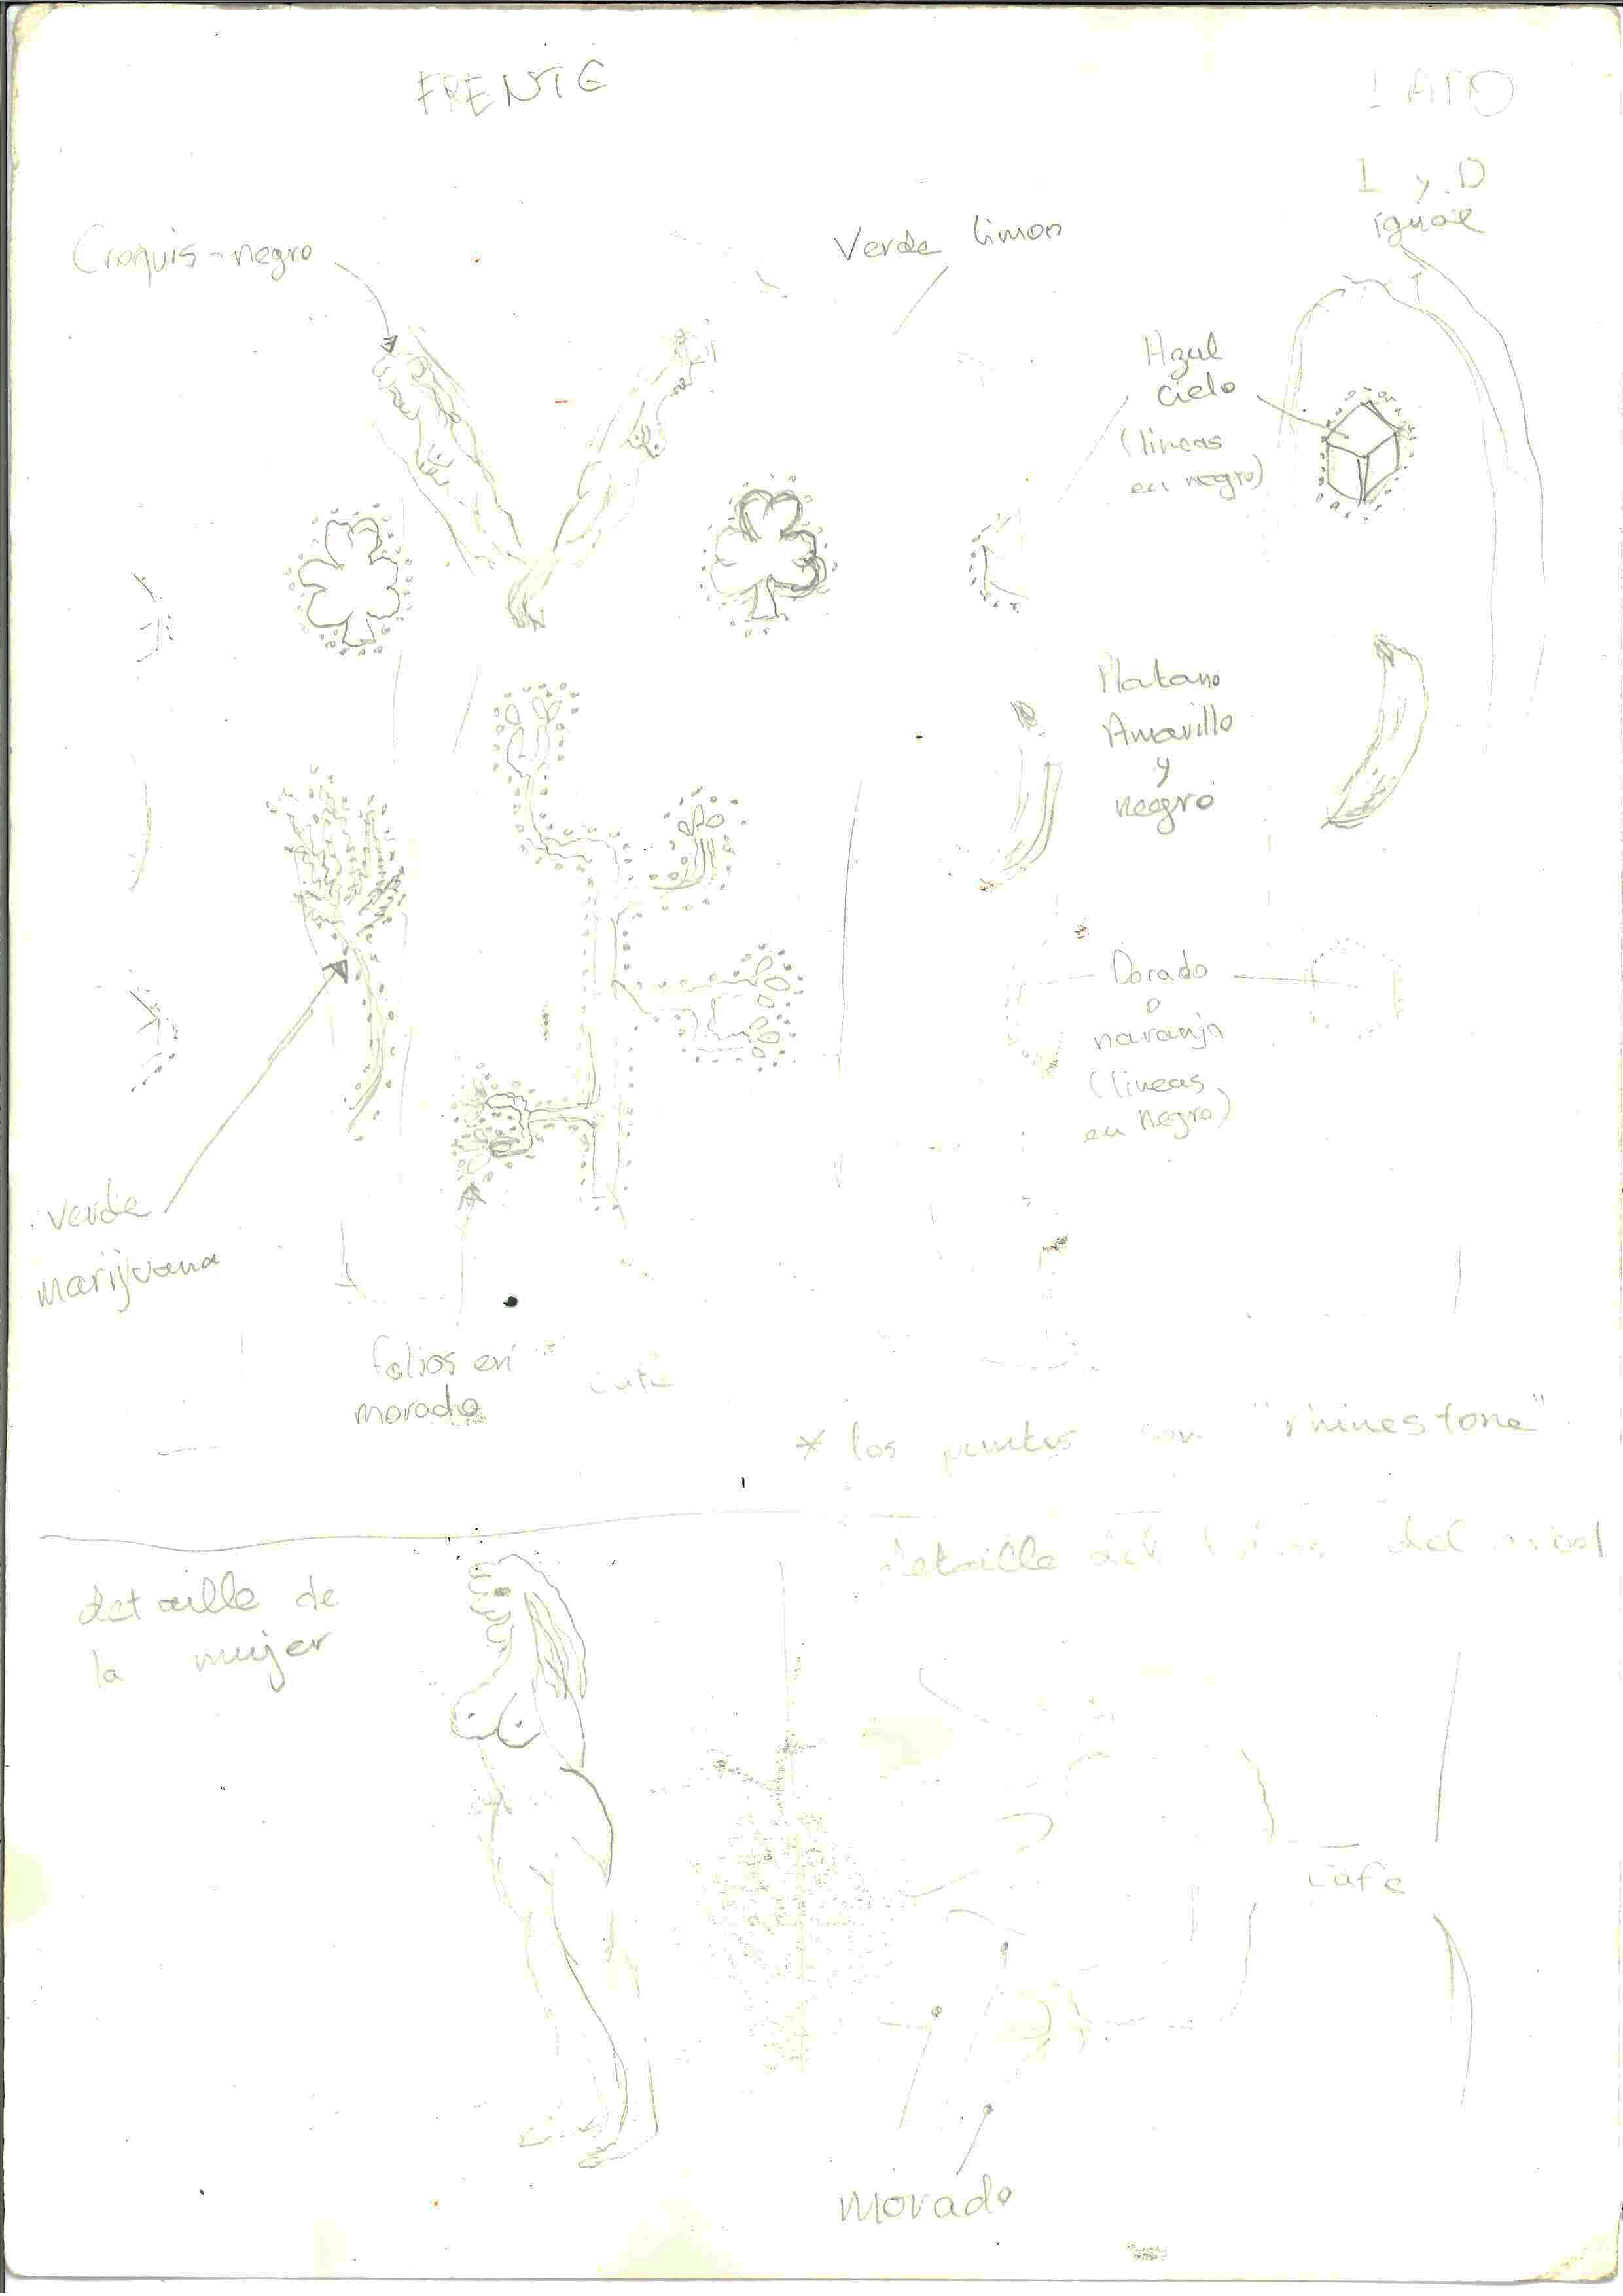 FRENTE
LADO
I y D
igual
Croquis-negro
Verde limon
Azul
cielo
(lineas
en negro)
Platano
Amarillo
y
negro
Dorado
o
naranja
(lineas
en negro)
verde
marijuana
folios en
morado
* los puntos son "rhinestone"
detaille de
la mujer
detaille del
del
cafe
morado